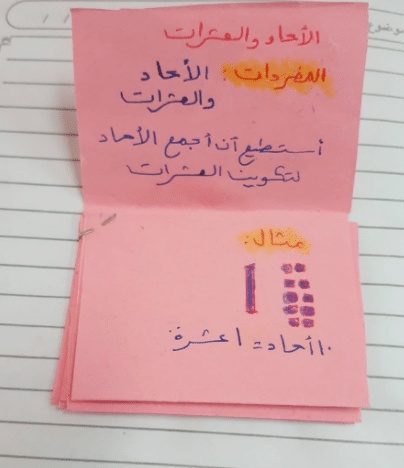 الأحاد والعشرات
المفردات: الأحاد
والعشرات
أستطيع أن أجمع الأحاد
لتكوين العشرات
مثال:
١٠ أحاد = ١ عشرة